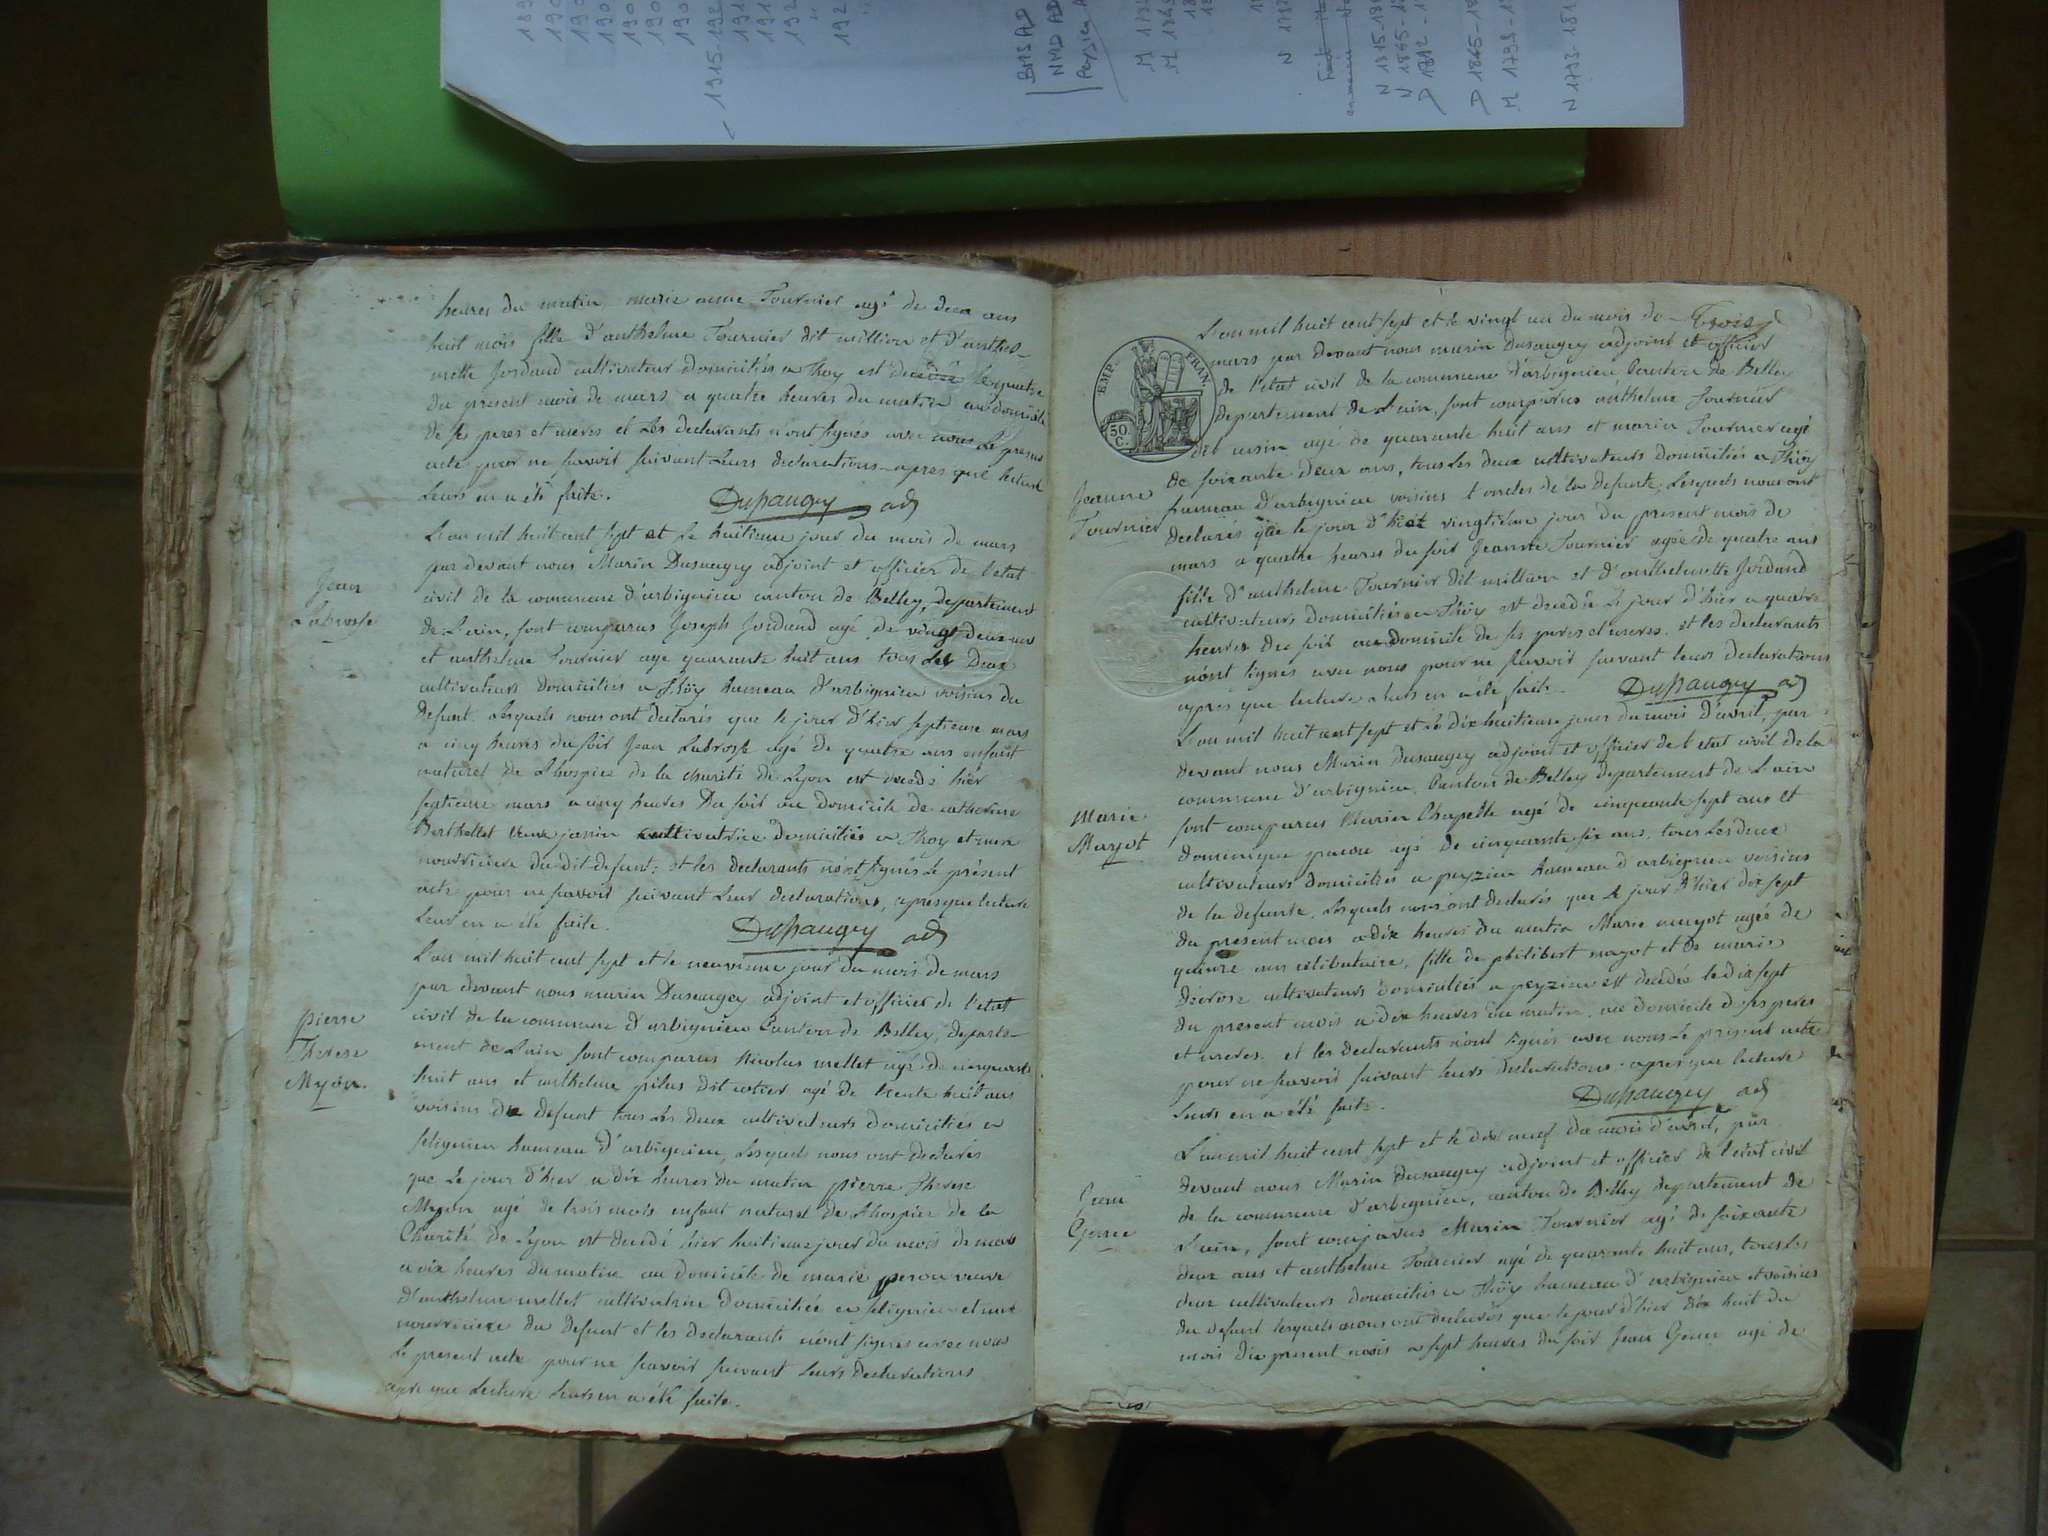 heures du matin marie anne Fournier agé de deux ans
huit mois fille d'anthelme Fournier dit million et d'anthel-
mette Jordand cultivateurs domiciliés a Thoy est decedée le quatre
du present mois de mars a quatre heures du matin au domicile
de ses peres et meres et Les declarants n'ont signés avec nous Le present
acte pour ne savoir suivant Leurs declarations apres que lecture
Leurs en a été faite. Dusaugey adj
Jean
Labrosse
L'an mil huit cent sept et Le huitieme jour du mois de mars
par devant nous Marin Dusaugey adjoint et officier de l'etat
civil de la commune d'arbignieu canton de Belley, departement
de L'ain, sont comparus Joseph Jordand agé de vingt deux ans
et anthelme Fournier age quarante huit ans tous Les Deux
cultivateurs domiciliés a Thöy hameau d'arbignieu voisins du
defunt Lesquels nous ont declarés que le jour d'hier septieme mars
a cinq heures du soir Jean Labrosse agé de quatre ans enfant
naturel de L'hospice de la charité de Lyon est decedé hier
septieme mars a cinq heures Du soir au domicile de catherine
Berthellet veuve janin cultivatrice domiciliée a Thoy et mere
nourriciere du dit defunt; et les declarants n'ont signés Le présent
acte pour ne savoir suivant Leur declarations, apres que lecture
Leur en a été faite. Dusaugey adj
pierre
Therese
Myon.
L'an mil huit cent sept et le neuvieme jour du mois de mars
par devant nous marin Dusaugey adjoint et officier de l'etat
civil de la commune d'arbignieu Canton de Belley, departe-
ment de L'ain sont comparus Nicolas mellet agé de cinquante
huit ans et anthelme pilus dit agé de trente huit ans
voisins du defunt tous Les deux cultivateurs domiciliés a
hameau d'arbignieu, Lesquels nous ont declarés
que Le jour d'hier a dix heures du matin pierre Therese
Myon agé de trois mois enfant naturel de L'hospice de la
Charité de Lyon est decedé hier huitieme jour du mois de mars
a dix heures du matin au domicile de marie peron veuve
d'anthelme mellet cultivatrice domiciliée a et mere
nourriciere du defunt et les declarants n'ont signés avec nous
Le present acte pour ne savoir suivant Leurs declarations
apre que Lecture Leurs en a été faite.
Troisz
EMP. FRAN.
50 C.
L'an mil huit cent sept et le vingt un du mois de
mars par devant nous marin Dusaugey adjoint et officier
de l'etat civil de la commune d'arbignieu Canton de Belley
departement de L'ain, sont comparus anthelme Fournier
dit agé de quarante huit ans et marin Fournier agé
de soixante deux ans, tous Les deux cultivateurs domiciliés a Thöy
Jeanne
Fournier
hameau d'arbignieu voisins et oncles de la defunte, Lesquels nous ont
declarés que le jour d'hier vingtième jour du present mois de
mars a quatre heures du soir Jeanne Fournier agée de quatre ans
fille d'anthelme Fournier dit million et d'anthelmette Jordand
cultivateurs domiciliés a Thöy est decedée Le jour d'hier a quatre
heures du soir au domicile de ses peres et meres. et les declarants
n'ont signés avec nous pour ne savoir suivant leurs declarations
apres que lecture Leurs en a été faite. Dusaugey adj
Marie
Mayot
L'an mil huit cent sept et Le dix huitieme jour du mois d'avril, par
devant nous Marin dusaugey adjoint et officier de l'etat civil de la
commune d'arbignieu, Canton de Belley departement de L'ain
sont comparus Marin Chapelle agé de cinquante sept ans et
dominique agé de cinquante six ans, tous Les deux
cultivateurs domiciliés a peyzieu hameau d'arbignieu voisins
de la defunte, Lesquels nous ont declarés que Le jour d'hier dix sept
du present mois a dix heures du matin Marie mayot agée de
quinze ans celibataire, fille de philibert mayot et de marie
cultivateurs domiciliés a peyzieu est decedée le dix sept
du present mois a dix heures du matin, au domicile de ses peres
et meres. et les declarants n'ont signés avec nous Le présent acte
pour ne savoir suivant leurs declarations apres que lecture
Leurs en a été faite. Dusaugey adj
L'an mil huit cent sept et le dix neuf du mois d'avril, par
devant nous Marin Dusaugey adjoint et officier de l'etat civil
de la commune d'arbignieu, canton de Belley departement de
L'ain, sont comparus Marin Fournier agé de soixante
deux ans et anthelme Fournier agé de quarante huit ans, tous les
deux cultivateurs domiciliés a Thöy hameau d'arbignieu et voisins
du defunt lesquels nous ont declarés que le jour d'hier dix huit du
mois du present mois a sept heures du soir Jean agé de